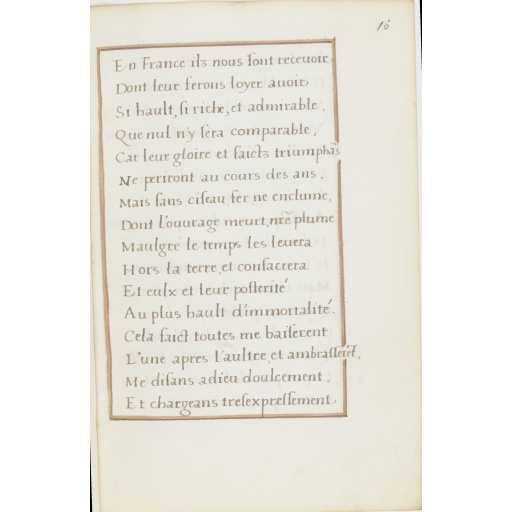 16
En France ilz nous font receuoir
Dont leur ferons loyer auoir
Si hault, si riche, et admirable,
Que nul n'y sera comparable,
Car leur gloire et faictz triumphãs
Ne periront au cours des ans.
Mais sans ciseau, fer ne enclume,
Dont l'ouurage meurt, nr̃e plume
Maulgré le temps les leuera
Hors la terre, et consacrera
Et eulx et leur posterité
Au plus hault d'immortalité.
Cela faict toutes me baiserent
L'une apres l'aultre, et ambrasserẽt,
Me disans adieu doulcement.
Et chargeans tresexpressement